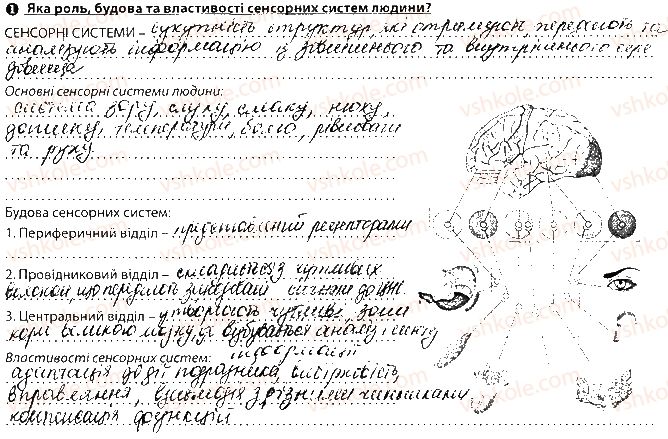 1 Яка роль, будова та властивості сенсорних систем людини?
СЕНСОРНІ СИСТЕМИ – сукупність структур, які отримують, передають та
аналізують інформацію із зовнішнього та внутрішнього сере
довища
Основні сенсорні системи людини:
система зору, слуху, смаку, нюху,
дотику, температури, болю, рівноваги
та руху.
Будова сенсорних систем:
1. Периферичний відділ – представлений рецепторами
2. Провідниковий відділ – складається з чутливих
волокон, що передають
3. Центральний відділ – утворюють чутливі зони
кори великого мозку, де відбувається аналіз і синтез
Властивості сенсорних систем: інформації
адаптація до дії подразника,
вправляння, взаємодія з різними чинниками
компенсація функцій
vshkole.com